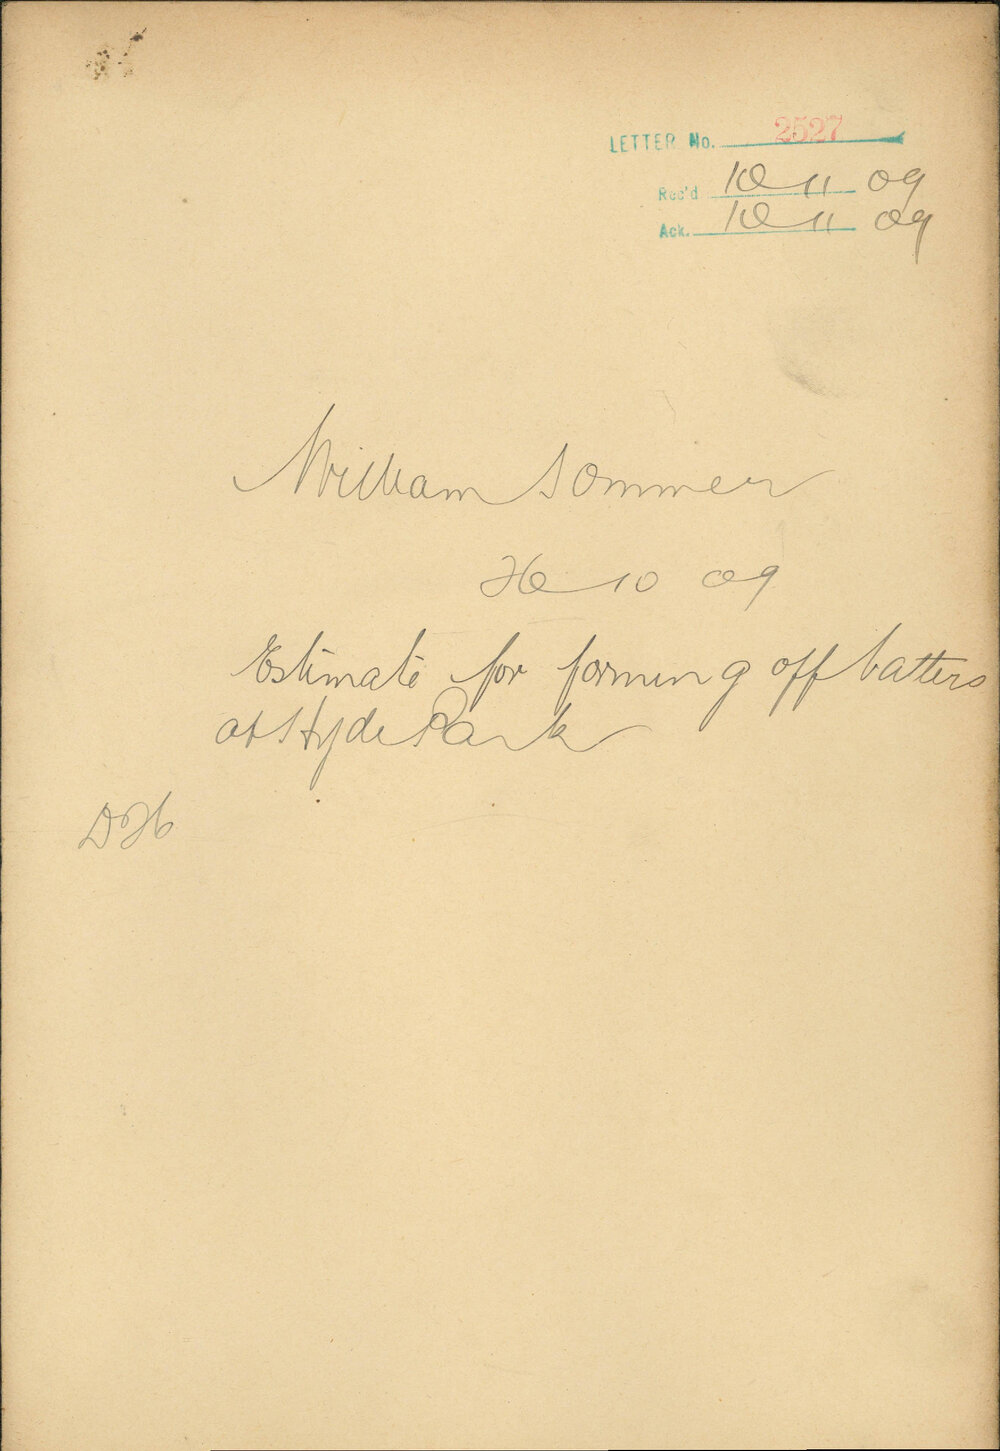 LETTER No. 2527
Rec'd 10 11 09
Ack. 10 11 09
William Sommer
26 10 09
Estimate for forming off batters
at Hyde Park